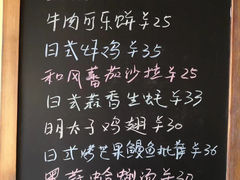 牛肉可乐饼￥25
日式炸鸡￥35
和风蕃茄沙拉￥25
日式蒜香生蚝￥33
明太子鸡翅￥30
日式烤芒果鳗鱼批萨￥36
黑蒜蛤蜊汤￥30